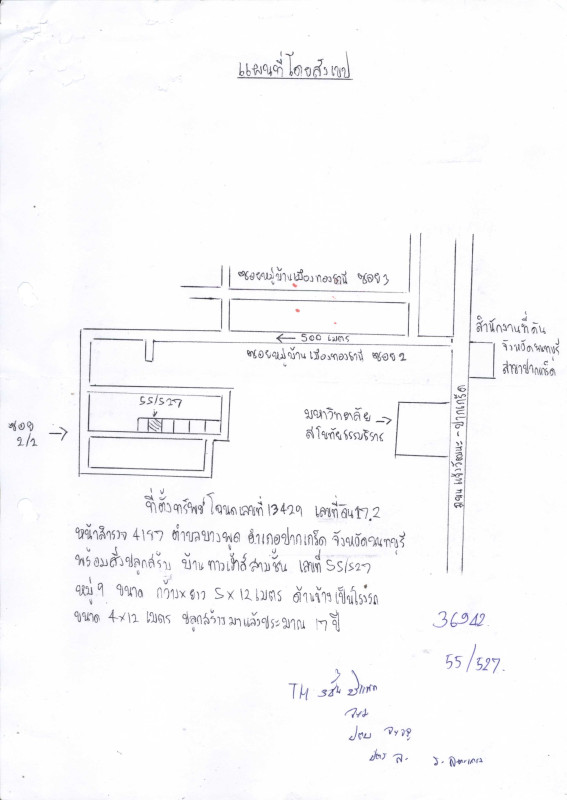 แผนที่โดยสังเขป
ซอยหมู่บ้านเมืองทองธานี ซอย 3
500 เมตร
ซอยหมู่บ้านเมืองทองธานี ซอย 2
สำนักงานที่ดิน
จังหวัดนนทบุรี
สาขาปากเกร็ด
55/527
ซอย
2/2
มหาวิทยาลัย
สุโขทัยธรรมาธิราช
ถนนแจ้งวัฒนะ-ปากเกร็ด
ที่ตั้งทรัพย์ โฉนดเลขที่ 13429 เลขที่ดิน 17,2
หน้าสำรวจ 4157 ตำบลบางพูด อำเภอปากเกร็ด จังหวัดนนทบุรี
พร้อมสิ่งปลูกสร้าง บ้านทาวเฮ้าส์สามชั้น เลขที่ 55/527
หมู่ 9 ขนาด กว้าง x ยาว 5 x 12 เมตร ด้านข้างเป็นโรงรถ
ขนาด 4 x 12 เมตร ปลูกสร้างมาแล้วประมาณ 17 ปี
36942
55/527.
TH 3 ชั้น